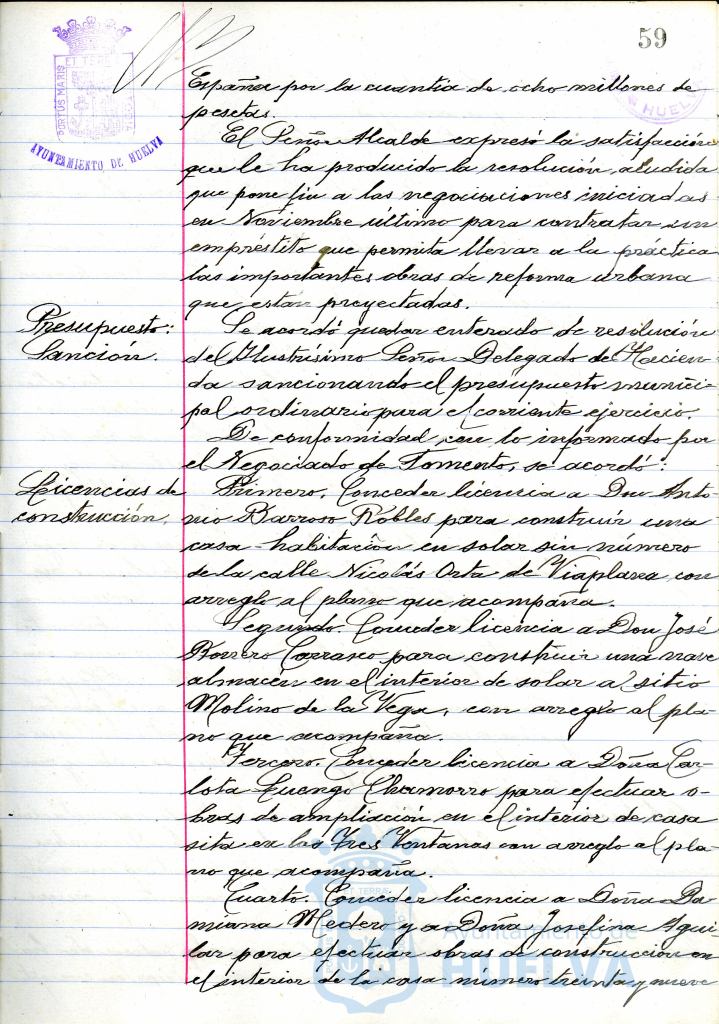 59
PORTUS MARIS ET TERRE CUSTODIA
AYUNTAMIENTO DE HUELVA
HUEL
España por la cuantía de ocho millones de
pesetas.
El Señor Alcalde expresó la satisfacción
que le ha producido la resolución aludida
que pone fin a las negociaciones iniciadas
en Noviembre último para contratar un
empréstito que permita llevar a la práctica
las importantes obras de reforma urbana
que están proyectadas.
Presupuesto:
Sanción.
Se acordó quedar enterado de resolución
del Ilustrísimo Señor Delegado de Hacien-
da sancionando el presupuesto munici-
pal ordinario para el corriente ejercicio.
De conformidad con lo informado por
el Negociado de Fomento, se acordó:
Licencias de
construcción.
Primero. Conceder licencia a Don Anto
nio Barroso Robles para construir una
casa-habitación en solar sin número
de la calle Nicolás Orta de Viaplana con
arreglo al plano que acompaña.
Segundo. Conceder licencia a Don José
Romero Carrasco para construir una nave
almacén en el interior de solar al sitio
Molino de la Vega, con arreglo al pla-
no que acompaña.
Tercero. Conceder licencia a Doña Car-
lota Luengo Chamorro para efectuar o-
bras de ampliación en el interior de casa
sita en las Tres Ventanas con arreglo al pla-
no que acompaña.
Cuarto. Conceder licencia a Doña Da-
miana Medero y a Doña Josefina Agui
lar para efectuar obras de construcción en
el interior de la casa número treinta y nueve
Ayuntamiento de
HUELVA